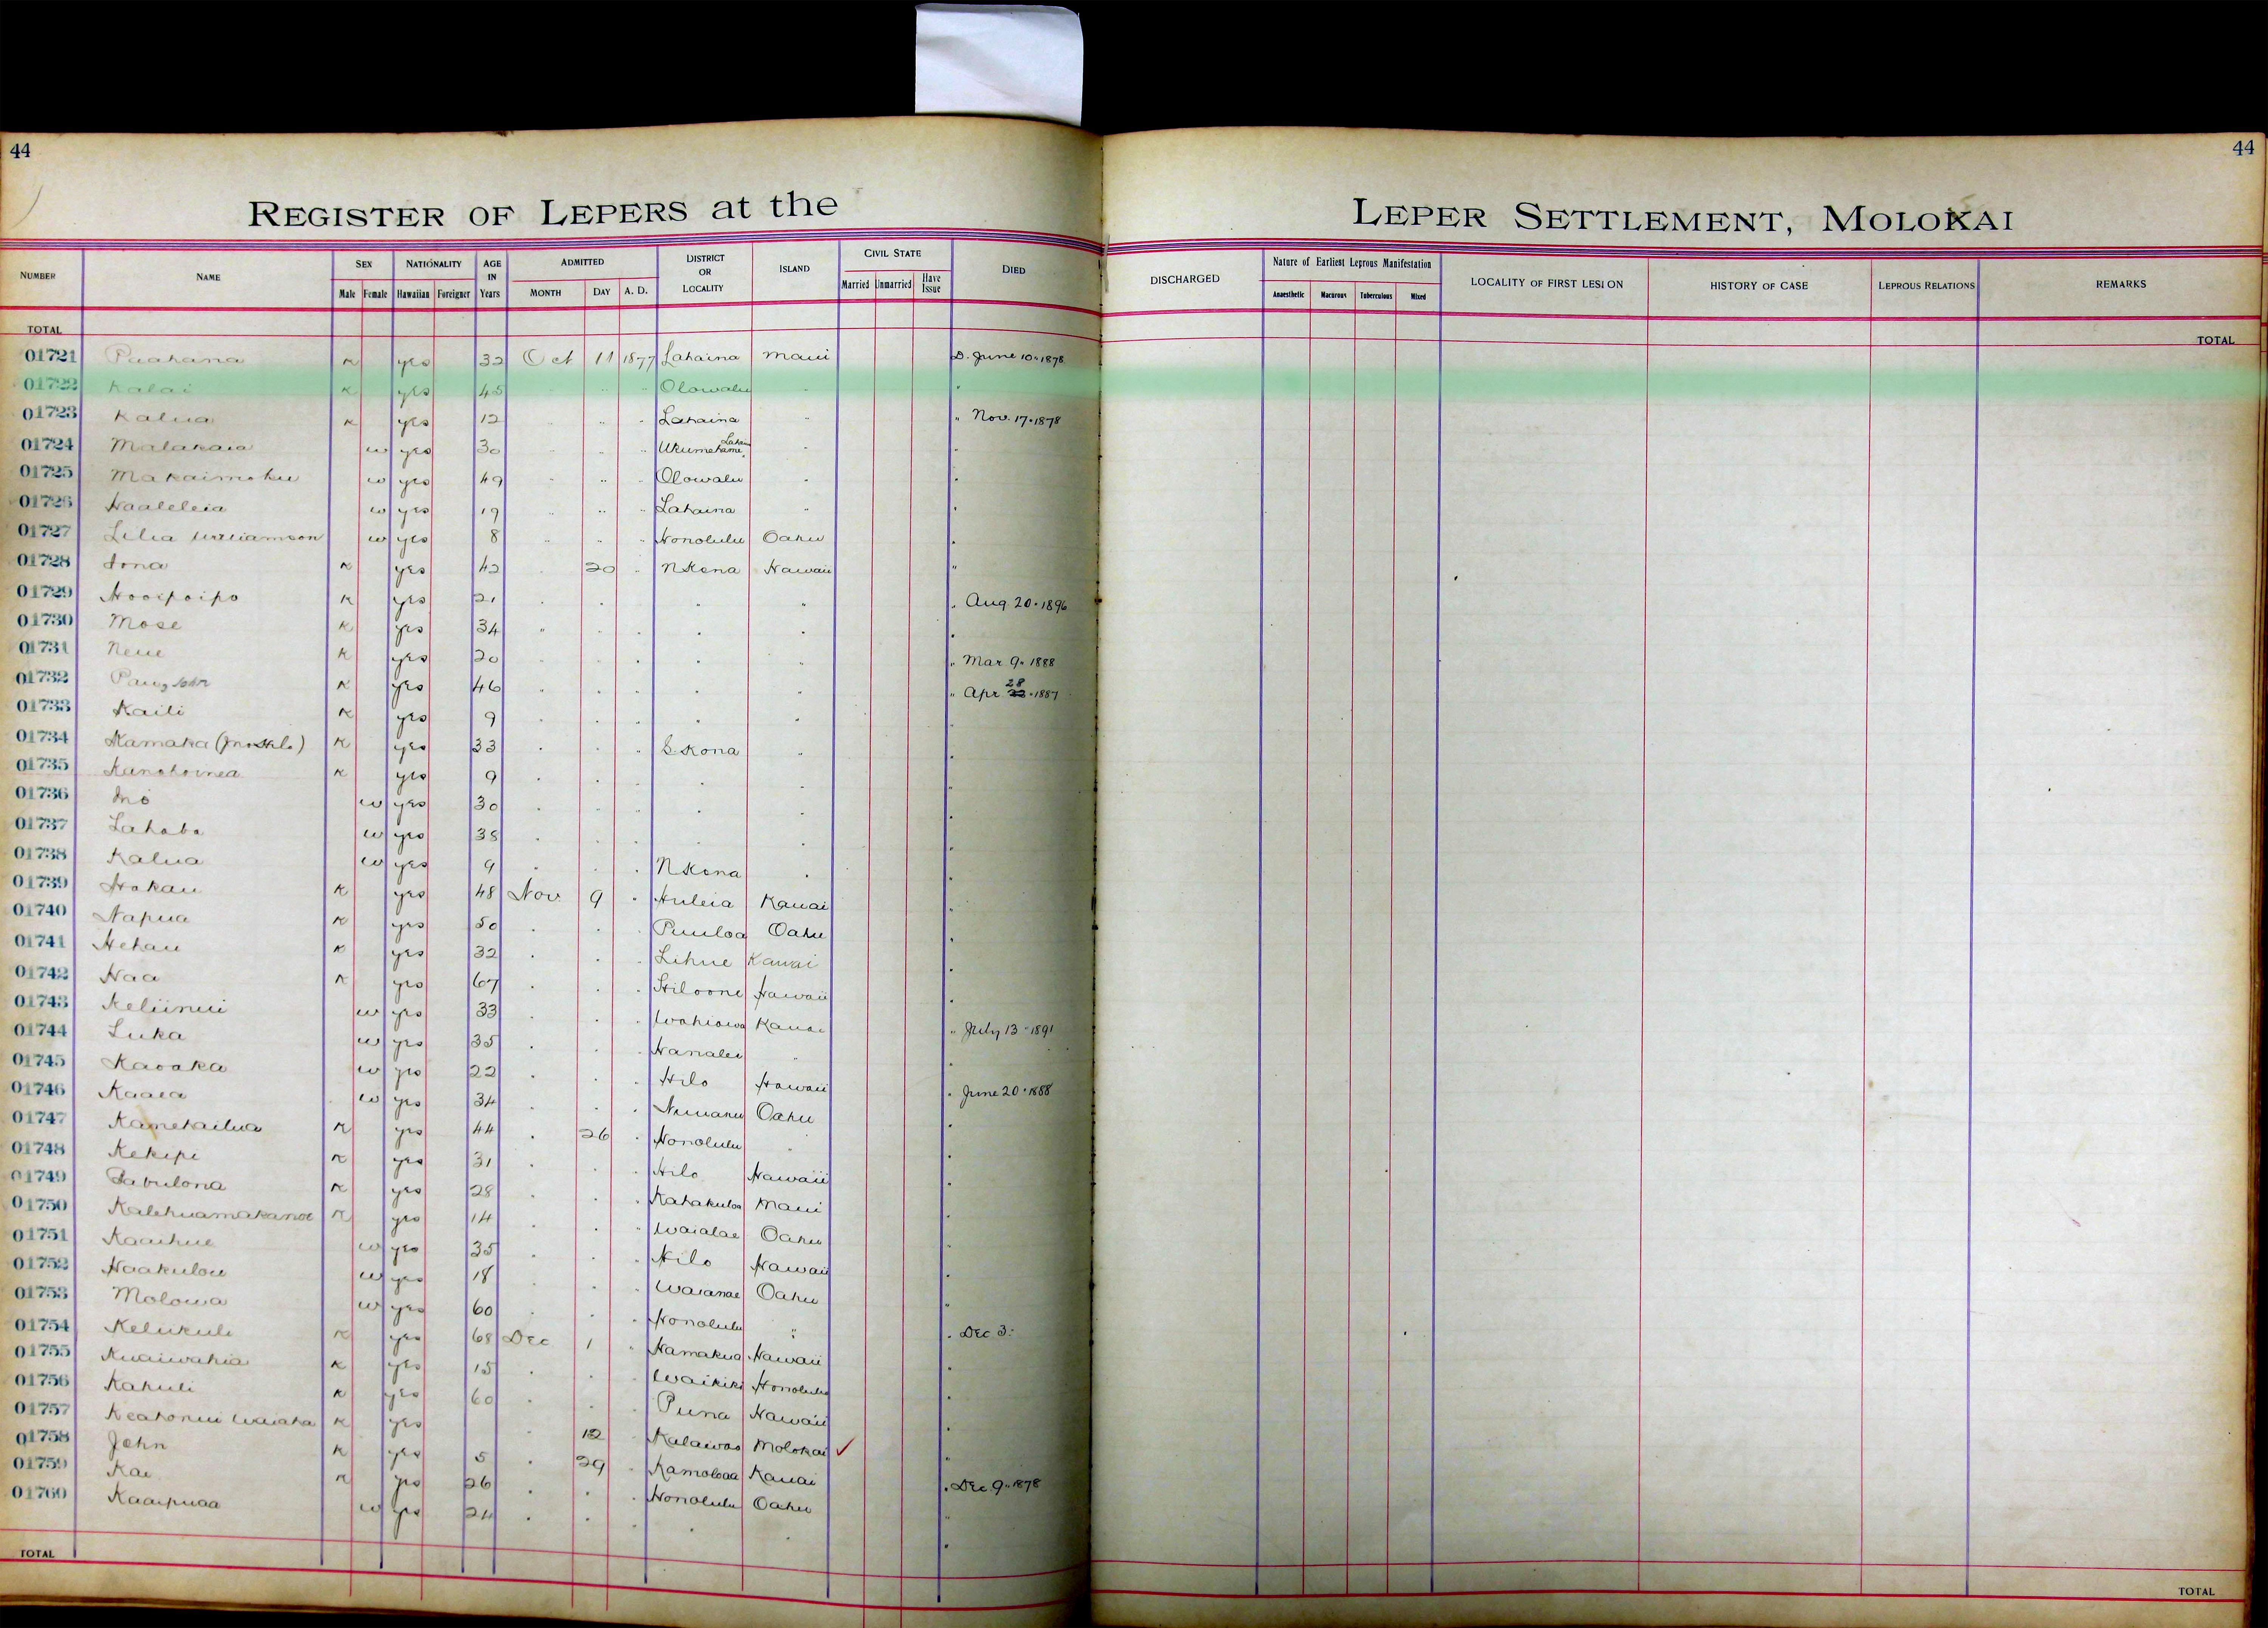 44
44
REGISTER OF LEPERS at the LEPER SETTLEMENT, MOLOKAI
NUMBER NAME SEX Male Female NATIONALITY Hawaiian Foreigner AGE IN Years ADMITTED MONTH DAY A. D. DISTRICT OR LOCALITY ISLAND CIVIL STATE Married Unmarried Have Issue DIED DISCHARGED Nature of Earliest Leprous Manifestation Anaesthetic Macurous Tuberculous Mixed LOCALITY OF FIRST LESION HISTORY OF CASE LEPROUS RELATIONS REMARKS
TOTAL TOTAL
01721 Puahana K yes 32 Oct 11 1877 Lahaina Maui D. June 10 " 1878
01722 Kalai K yes 45 " " " Olowalu " "
01723 Kalua K yes 12 " " " Lahaina " " Nov. 17 " 1878
01724 Malakaia w yes 30 " " " Ukumehame Lahaina " "
01725 Makaimoku w yes 49 " " " Olowalu " "
01726 Haaleleia w yes 19 " " " Lahaina " "
01727 Lilia Williamson w yes 8 " " " Honolulu Oahu "
01728 Iona K yes 42 " 20 " N Kona Hawaii "
01729 Hooipoipo K yes 21 " " " " " Aug. 20 " 1896
01730 Mose K yes 34 " " " " " "
01731 Neue K yes 20 " " " " " " Mar 9 " 1888
01732 John K yes 46 " " " " " " Apr 28 " 1887
01733 Kaili K yes 9 " " " " " "
01734 Kamaka K yes 33 " " " S. Kona " "
01735 Kanohoinea K yes 9 " " " " " "
01736 Ino w yes 30 " " " " " "
01737 Lahaba w yes 38 " " " " " "
01738 Kalua w yes 9 " " " N Kona " "
01739 Hokau K yes 48 Nov 9 " Huleia Kauai "
01740 Napua K yes 50 " " " Puuloa Oahu "
01741 Hehau K yes 32 " " " Lihue Kauai "
01742 Naa K yes 67 " " " Hiloone Hawaii "
01743 Keliinui w yes 33 " " " Wahiawa Kauai " July 13 " 1891
01744 Luka w yes 35 " " " Hanalei " "
01745 Kaoaka w yes 22 " " " Hilo Hawaii " June 20 " 1888
01746 Kaaea w yes 34 " " " Nuuanu Oahu "
01747 Kamekailua K yes 44 " 26 " Honolulu " "
01748 Kekipi K yes 31 " " " Hilo Hawaii "
01749 Zabulona K yes 28 " " " Kahakuloa Maui "
01750 Kalehuamakanoe K yes 14 " " " Waialae Oahu "
01751 Kaaihue w yes 35 " " " Hilo Hawaii "
01752 Haakulou w yes 18 " " " Waianae Oahu "
01753 Molowa w yes 60 " " " Honolulu " " Dec 3.
01754 Kelikuli K yes 68 Dec 1 " Hamakua Hawaii "
01755 Kuaiwahia K yes 15 " " " Waikiki Honolulu "
01756 Kahuli K yes 60 " " " Puna Hawaii "
01757 Keahonui Waiaha K yes " 12 " Kalawao Molokai ✓ "
01758 John K yes 5 " 29 " Kamoloaa Kauai " Dec 9 " 1878
01759 Kai K yes 26 " " " Honolulu Oahu "
01760 Kaaipuaa w yes 24 " " " " " "
TOTAL TOTAL